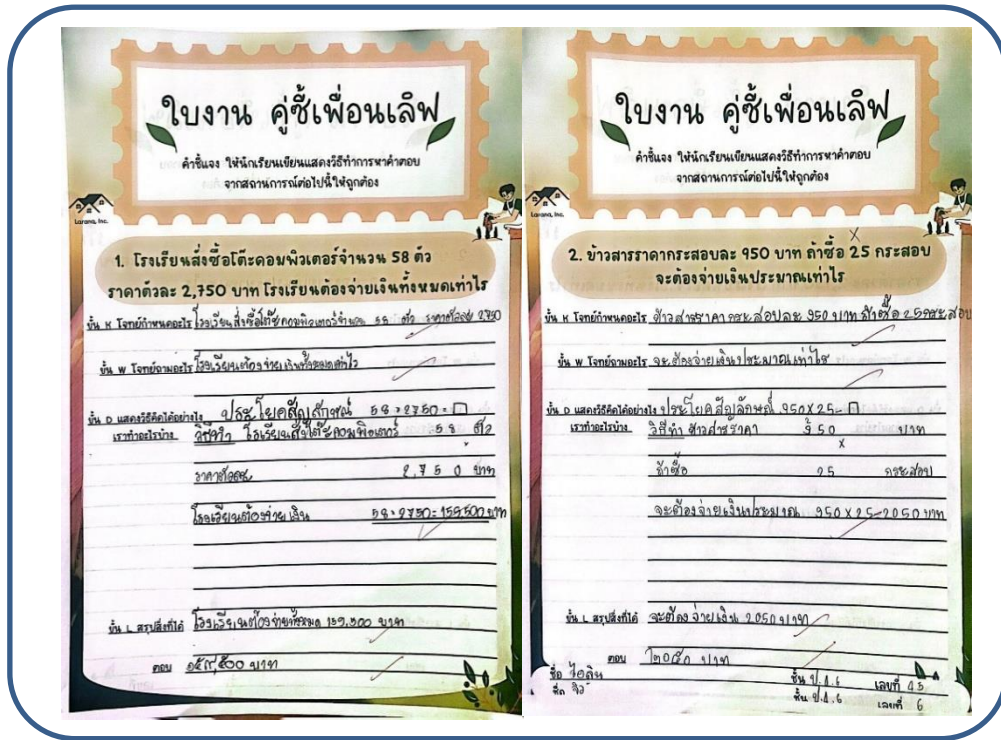 ใบงาน คู่ซี้เพื่อนเลิฟ
คำชี้แจง ให้นักเรียนเขียนแสดงวิธีทำการหาคำตอบ
จากสถานการณ์ต่อไปนี้ให้ถูกต้อง
Larana, Inc.
1. โรงเรียนสั่งซื้อโต๊ะคอมพิวเตอร์จำนวน 58 ตัว
ราคาตัวละ 2,750 บาท โรงเรียนต้องจ่ายเงินทั้งหมดเท่าไร
ขั้น K โจทย์กำหนดอะไร โรงเรียนสั่งซื้อโต๊ะคอมพิวเตอร์จำนวน 58 ตัว ราคาตัวละ 2,750
ขั้น W โจทย์ถามอะไร โรงเรียนต้องจ่ายเงินทั้งหมดเท่าไร
ขั้น D แสดงวิธีคิดได้อย่างไร ประโยคสัญลักษณ์ 58×2750=□
เราทำอะไรบ้าง วิธีทำ โรงเรียนสั่งโต๊ะคอมพิวเตอร์ 58 ตัว
ราคาตัวละ 2,750 บาท
โรงเรียนต้องจ่ายเงิน 58×2750=159500 บาท
ขั้น L สรุปสิ่งที่ได้ โรงเรียนต้องจ่ายทั้งหมด 159,500 บาท
ตอบ ๑๕๙,๕๐๐ บาท
ใบงาน คู่ซี้เพื่อนเลิฟ
คำชี้แจง ให้นักเรียนเขียนแสดงวิธีทำการหาคำตอบ
จากสถานการณ์ต่อไปนี้ให้ถูกต้อง
Larana, Inc.
×
2. ข้าวสารราคากระสอบละ 950 บาท ถ้าซื้อ 25 กระสอบ
จะต้องจ่ายเงินประมาณเท่าไร
ขั้น K โจทย์กำหนดอะไร ข้าวสารราคากระสอบละ 950 บาท ถ้าซื้อ 25 กระสอบ
ขั้น W โจทย์ถามอะไร จะต้องจ่ายเงินประมาณเท่าไร
ขั้น D แสดงวิธีคิดได้อย่างไร ประโยคสัญลักษณ์ 950×25=□
เราทำอะไรบ้าง วิธีทำ ข้าวสารราคา 950 บาท
×
ถ้าซื้อ 25 กระสอบ
จะต้องจ่ายเงินประมาณ 950×25=2050 บาท
ขั้น L สรุปสิ่งที่ได้ จะต้องจ่ายเงิน 2050 บาท
ตอบ ๒๐๕๐ บาท
ชื่อ ไอลิน ชั้น ป.4.6 เลขที่ 45
ชื่อ จิว ชั้น ป.4.6 เลขที่ 6